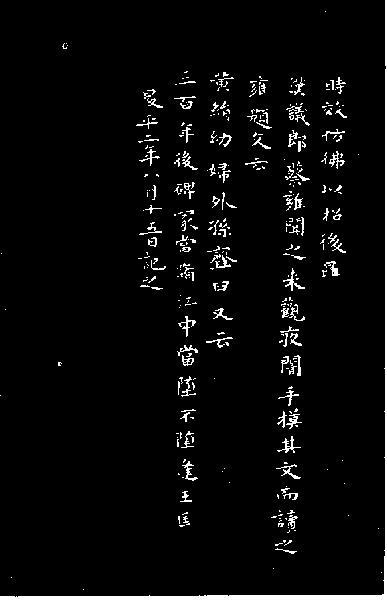 時效仿佛以招後
漢議郎蔡雍聞之來觀夜闇手摸其文而讀之
雍題文云
黃絹幼婦外孫齏臼又云
三百年後碑冢當墮江中當墮不墮逢王匡
昇平二年八月十五日記之